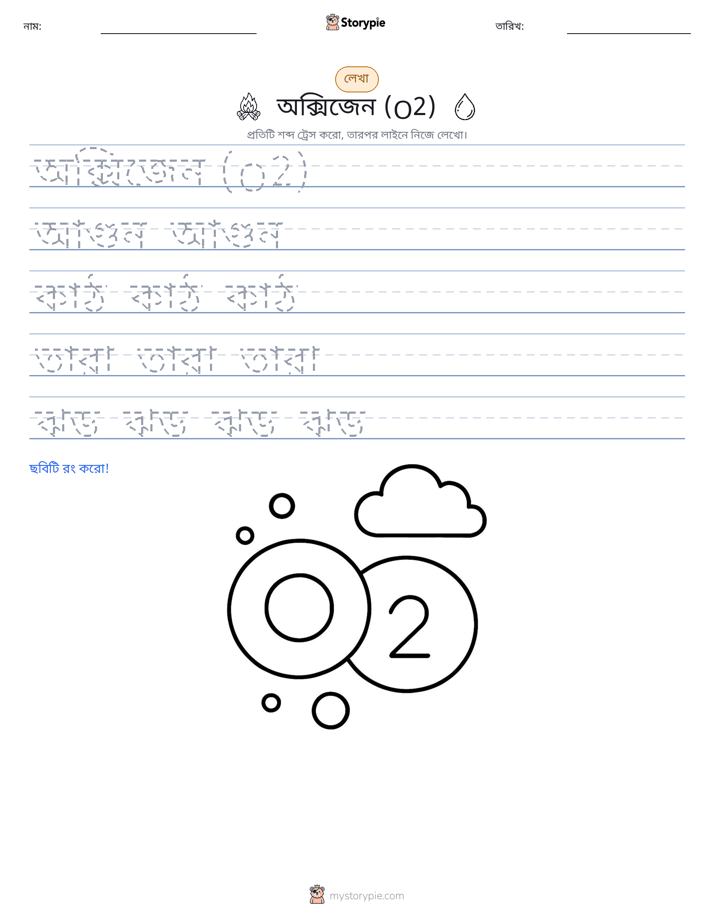 নাম:
Storypie
তারিখ:
লেখা
অক্সিজেন (O2)
প্রতিটি শব্দ ট্রেস করো, তারপর লাইনে নিজে লেখো।
অক্সিজেন (O2)
আগুন আগুন
কাঠ কাঠ কাঠ
তারা তারা তারা
ঝড় ঝড় ঝড় ঝড়
ছবিটি রং করো!
O 2
mystorypie.com